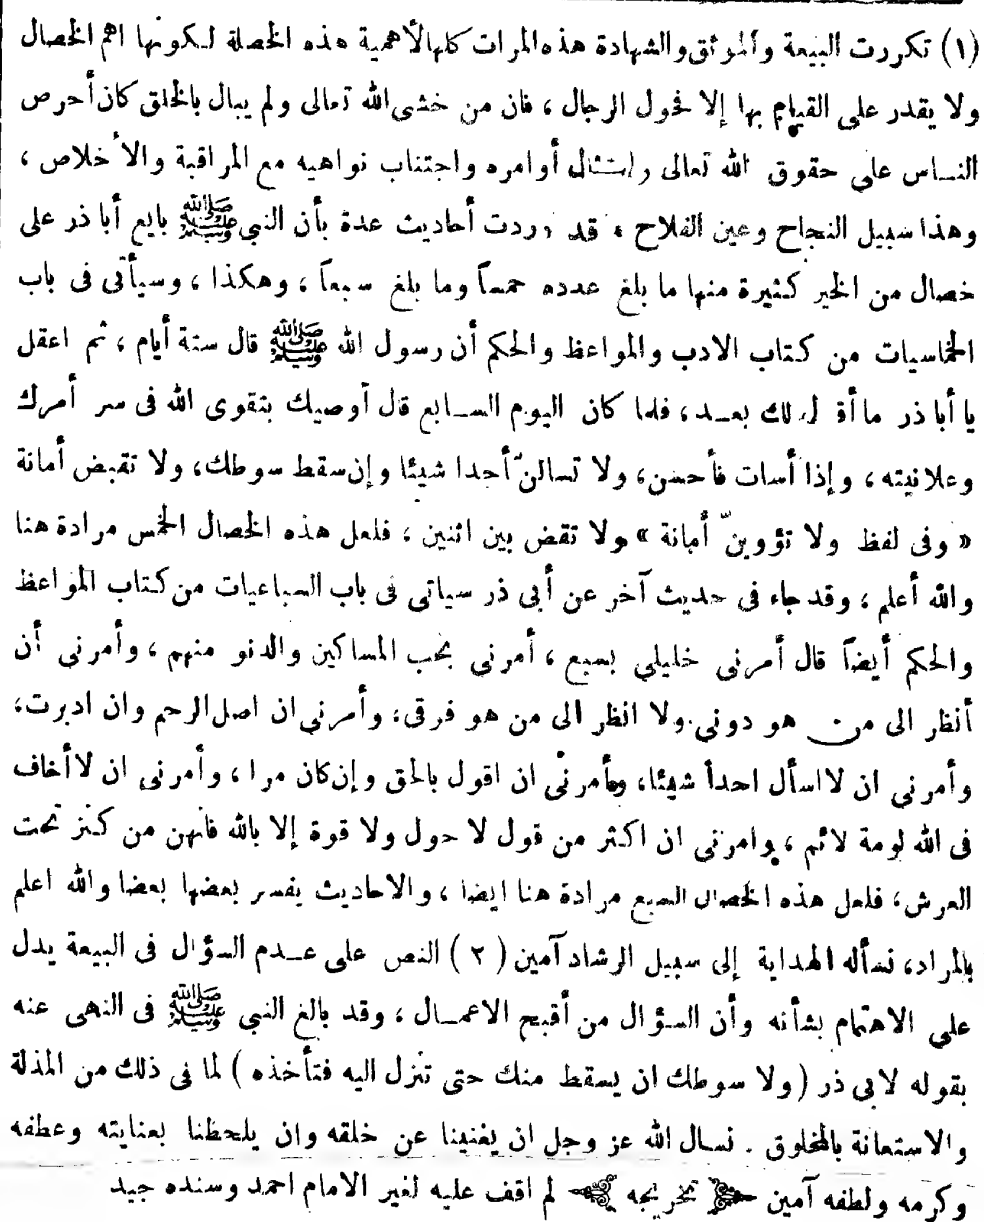 (١) تكررت البيعة والموثق والشهادة هذه المرات كلها لأهمية هذه الخصلة لكونها اهم الخصال
ولا يقدر على القيام بها إلا فحول الرجال ، فان من خشى الله تعالى ولم يبال بالخلق كان أحرص
النـاس على حقوق الله تعالى وامتثال أوامره واجتناب نواهيه مع المراقبة والأخلاص ،
وهذا سبيل النجاح وعين الفلاح ، قد وردت أحاديث عدة بأن النبي ﷺ بايع أبا ذر على
خصال من الخير كثيرة منها ما بلغ عدده خمساً وما بلغ سبعاً ، وهكذا ، وسيأتى فى باب
الخماسيات من كتاب الادب والمواعظ والحكم أن رسول الله ﷺ قال ستة أيام ، ثم اعقل
يا أبا ذر ما أقول لك بعـد ، فلما كان اليوم السـابع قال أوصيك بتقوى الله فى سر أمرك
وعلانيته ، وإذا أسات فأحسن، ولا تسالنّ أحدا شيئا وإن سقط سوطك، ولا تقبض أمانة
« وفى لفظ ولا تؤوينّ أمانة » ولا تقض بين اثنين ، فلعل هذه الخصال الخمس مرادة هنا
والله أعلم ، وقد جاء فى حديث آخر عن أبى ذر سياتى فى باب السباعيات من كتاب المواعظ
والحكم أيضاً قال أمرنى خليلي بسبع ، أمرني بحب المساكين والدنو منهم ، وأمرني أن
أنظر الى من هو دوني ولا انظر الى من هو فوقى، وأمرني ان اصل الرحم وان ادبرت،
وأمرني ان لا اسأل احداً شيئا، وأمرنى ان اقول بالحق وإن كان مرا ، وأمرنى ان لا أخاف
فى الله لومة لائم ، وامرنى ان اكثر من قول لا حول ولا قوة إلا بالله فانهن من كنز تحت
العرش، فلعل هذه الخصال السبع مرادة هنا ايضا ، والاحاديث يفسر بعضها بعضا والله اعلم
بالمراد، نسأله الهداية إلى سبيل الرشاد آمين ( ٢ ) النص على عـدم السؤال فى البيعة يدل
على الاهتمام بشأنه وأن السؤال من أقبح الاعمـال ، وقد بالغ النبي ﷺ فى النهى عنه
بقوله لابى ذر ( ولا سوطك ان يسقط منك حتى تنزل اليه فتأخذه ) لما فى ذلك من المذلة
والاستعانة بالمخلوق . نسال الله عز وجل ان يغنينا عن خلقه وان يلحظنا بعنايته وعطفه
وكرمه ولطفه آمين تخريجه لم اقف عليه لغير الامام احمد وسنده جيد